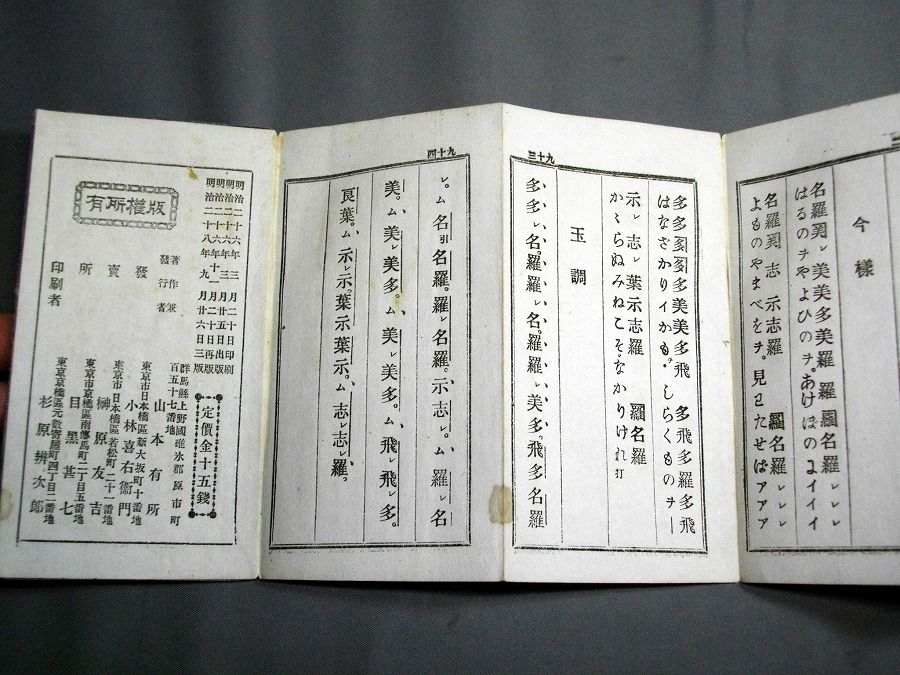 今樣
名羅㓁レ美美多美羅 羅名羅レレレ
はるのヲやよひのヲ。あけほのよイイイ
名羅 志 示志羅。名羅レレレ
よものやまべをヲ。見わたせばアアア
九十三
多多多美美多飛 多飛多羅多飛
はなさかりイかも。しらくものヲー
示レ志レ葉示志羅 名羅
かゝらぬみねこそ。なかりけれ打
玉調
多、多レ名。羅羅レ名。羅羅羅レ美多。飛多名羅
九十四
レ。ム名引名羅。羅レ名羅。示志レ。ム羅レ名
美。ム、美レ美多。ム、美レ美多。ム、飛レ飛レ多。
艮葉。ム、示レ示。葉示葉示。ム、志レ志レ羅。
明治二十六年三月二十日印刷
明治二十六年三月廿五日出版
明治二十六年十一月二十日再版
明治二十八年九月廿六日三版
定價金十五錢
版權所有
群馬縣上野國碓氷郡原市町
百五十七番地
著作兼
發行者
山本有所
東京市日本橋區新大坂町十番地
發
小林喜右衞門
東京市日本橋區若松町二十一番地
賣
榊原友吉
東京市京橋區南傳馬町二丁目五番地
所
目黑甚七
東京京橋區元數寄屋町四丁目二番地
印刷者
杉原辨次郎